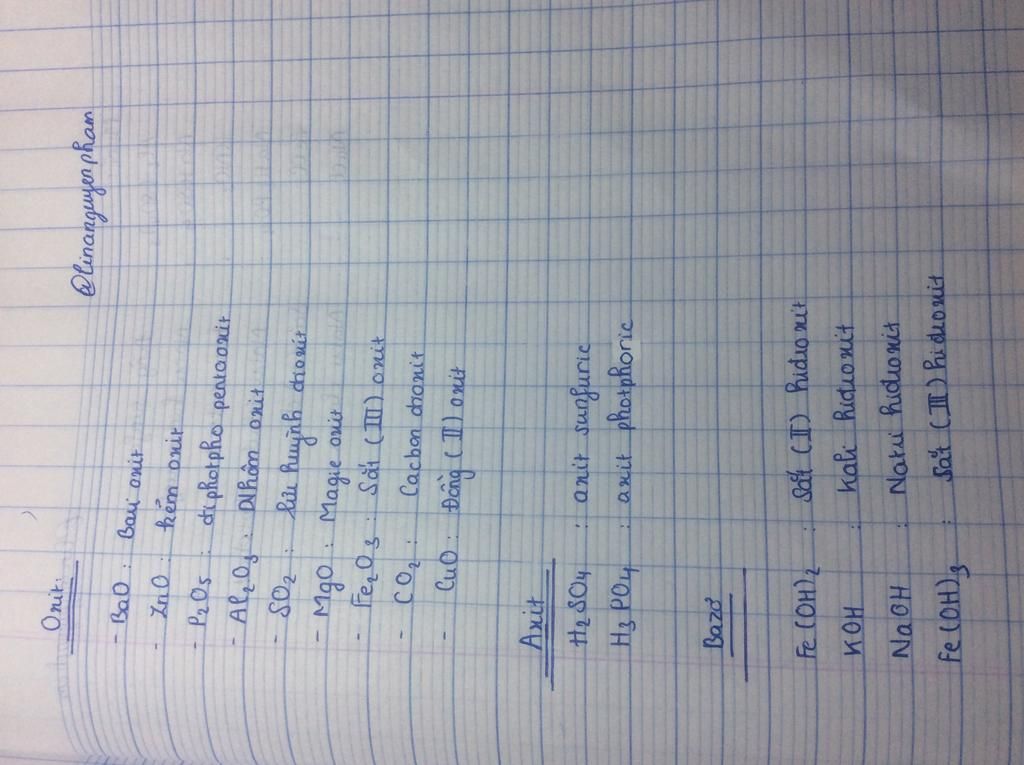 @linanguyenpham
Oxit:
- BaO : Bari oxit
- ZnO : kẽm oxit
- P2O5 : điphotpho pentaoxit
- Al2O3 : Nhôm oxit
- SO2 : lưu huỳnh đioxit
- MgO : Magie oxit
- Fe2O3 : Sắt (III) oxit
- CO2 : Cacbon đioxit
- CuO : Đồng (II) oxit
Axit
H2SO4 : axit sunfuric
H3PO4 : axit photphoric
Bazơ
Fe(OH)2 : Sắt (II) hiđroxit
KOH : Kali hiđroxit
NaOH : Natri hiđroxit
Fe(OH)3 : Sắt (III) hiđroxit